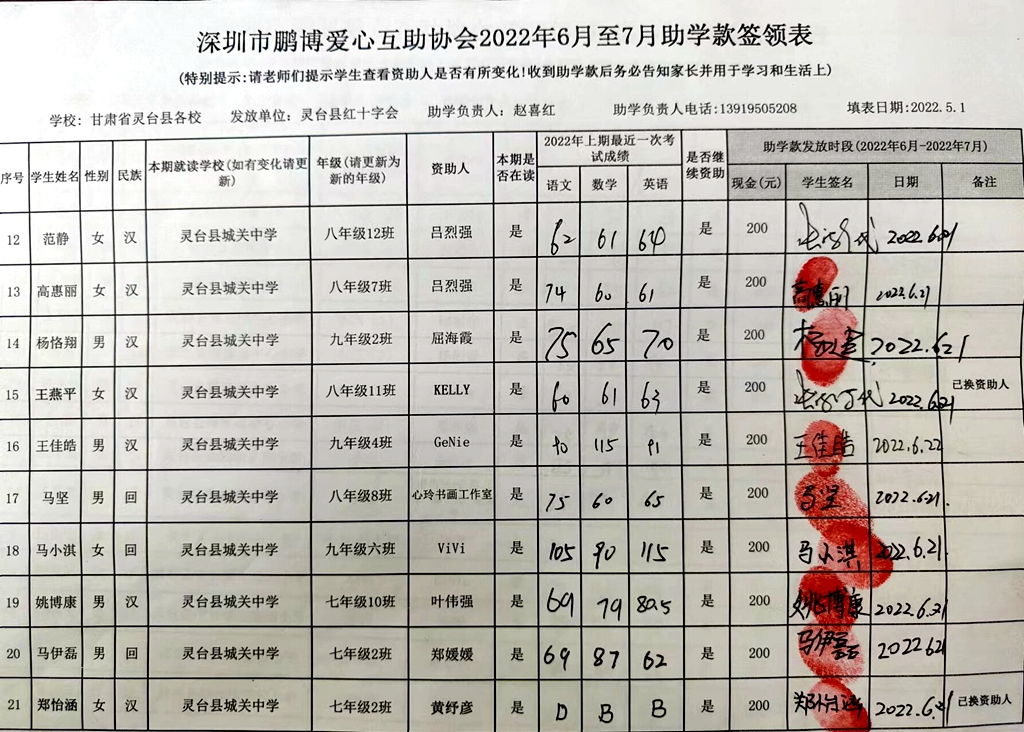 深圳市鹏博爱心互助协会2022年6月至7月助学款签领表
(特别提示:请老师们提示学生查看资助人是否有所变化!收到助学款后务必告知家长并用于学习和生活上)
学校: 甘肃省灵台县各校 发放单位: 灵台县红十字会 助学负责人: 赵喜红 助学负责人电话:13919505208 填表日期:2022.5.1
序号 学生姓名 性别 民族 本期就读学校(如有变化请更新) 年级(请更新为新的年级) 资助人 本期是否在读 2022年上期最近一次考试成绩 是否继续资助 助学款发放时段(2022年6月-2022年7月)
语文 数学 英语 现金(元) 学生签名 日期 备注
12 范静 女 汉 灵台县城关中学 八年级12班 吕烈强 是 62 61 64 是 200 2022.6.21
13 高惠丽 女 汉 灵台县城关中学 八年级7班 吕烈强 是 74 60 61 是 200 高惠丽 2022.6.21
14 杨恪翔 男 汉 灵台县城关中学 九年级2班 屈海霞 是 75 65 70 是 200 2022.6.21
15 王燕平 女 汉 灵台县城关中学 八年级11班 KELLY 是 60 61 63 是 200 2022.6.21 已换资助人
16 王佳皓 男 汉 灵台县城关中学 九年级4班 GeNie 是 90 115 91 是 200 王佳皓 2022.6.22
17 马坚 男 回 灵台县城关中学 八年级8班 心玲书画工作室 是 75 60 65 是 200 马坚 2022.6.21.
18 马小淇 女 回 灵台县城关中学 九年级六班 ViVi 是 105 90 115 是 200 马小淇 2022.6.21
19 姚博康 男 汉 灵台县城关中学 七年级10班 叶伟强 是 69 79 80.5 是 200 姚博康 2022.6.21
20 马伊磊 男 回 灵台县城关中学 七年级2班 郑媛媛 是 69 87 62 是 200 马伊磊 2022.6.21
21 郑怡涵 女 汉 灵台县城关中学 七年级2班 黄纾彦 是 D B B 是 200 郑怡涵 2022.6.21 已换资助人